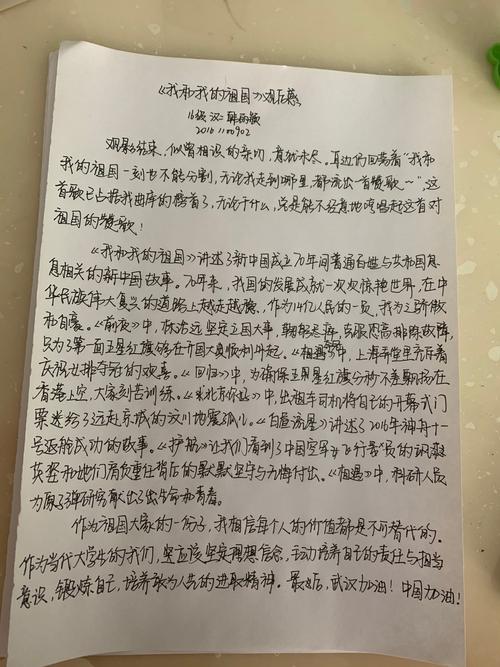 《我和我的祖国》观后感
16级 汉二 韩雨敏
20161100902
观影结束，似曾相识的亲切，意犹未尽。耳边仍回荡着“我和
我的祖国一刻也不能分割，无论我走到哪里，都流出一首赞歌～”，这
首歌已占据我曲库的榜首了，无论干什么，总是能不经意地哼唱起这首对
祖国的赞歌！
《我和我的祖国》讲述了新中国成立70年间普通百姓与共和国息
息相关的新中国故事。70年来，我国的发展成就一次次惊艳世界，在中
华民族伟大复兴的道路上越走越稳，作为14亿人民的一员，我为之骄傲
和自豪。《前夜》中，林治远坚定立国大事，克服恐高排除故障，
只为了第一面五星红旗能够在开国大典顺利升起。《相遇》中，上海弄堂里充斥着
庆祝女排夺冠的欢喜。《回归》中，为确保五星红旗分秒不差飘扬在
香港上空，大家刻苦训练。《北京你好》中，出租车司机将自己的开幕式门
票送给了远赴京城的汶川地震孤儿。《白昼流星》讲述了2016年神舟十一
号返航成功的故事。《护航》让我们看到了中国空军女飞行员的飒爽
英姿和她们肩负重任背后的默默坚守与无悔付出。《相遇》中，科研人员
为原子弹研究献出了生命和青春。
作为祖国大家的一份子，我相信每个人的价值都是不可替代的。
作为当代大学生的我们，更应该坚定理想信念，主动培养自己的责任与担当
意识，锻炼自己，培养敢为人先的进取精神。最后，武汉加油！中国加油！